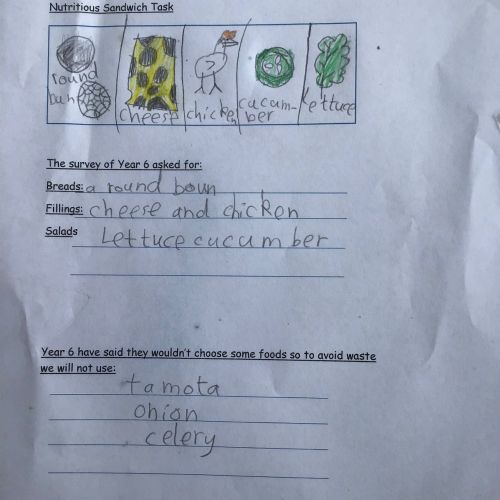 Nutritious Sandwich Task
round
bun
cheese
chicken
cucum-
ber
lettuce
The survey of Year 6 asked for:
Breads: a round boun
Fillings: cheese and chicken
Salads Lettuce cucumber
Year 6 have said they wouldn't choose some foods so to avoid waste
we will not use:
tamota
onion
celery